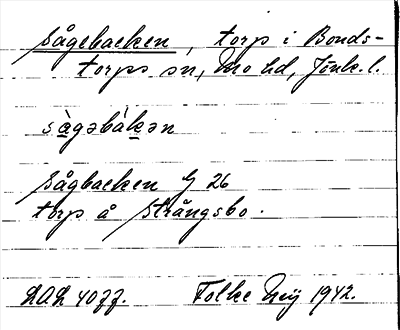 Sågebacken, torp i Bonds-
torps sn, Mo hd, Jönk.l.
sàgəbàkən
Sågbacken G 26
torp å Strångsbo.
DAL 4077. Folke Nij 1942.